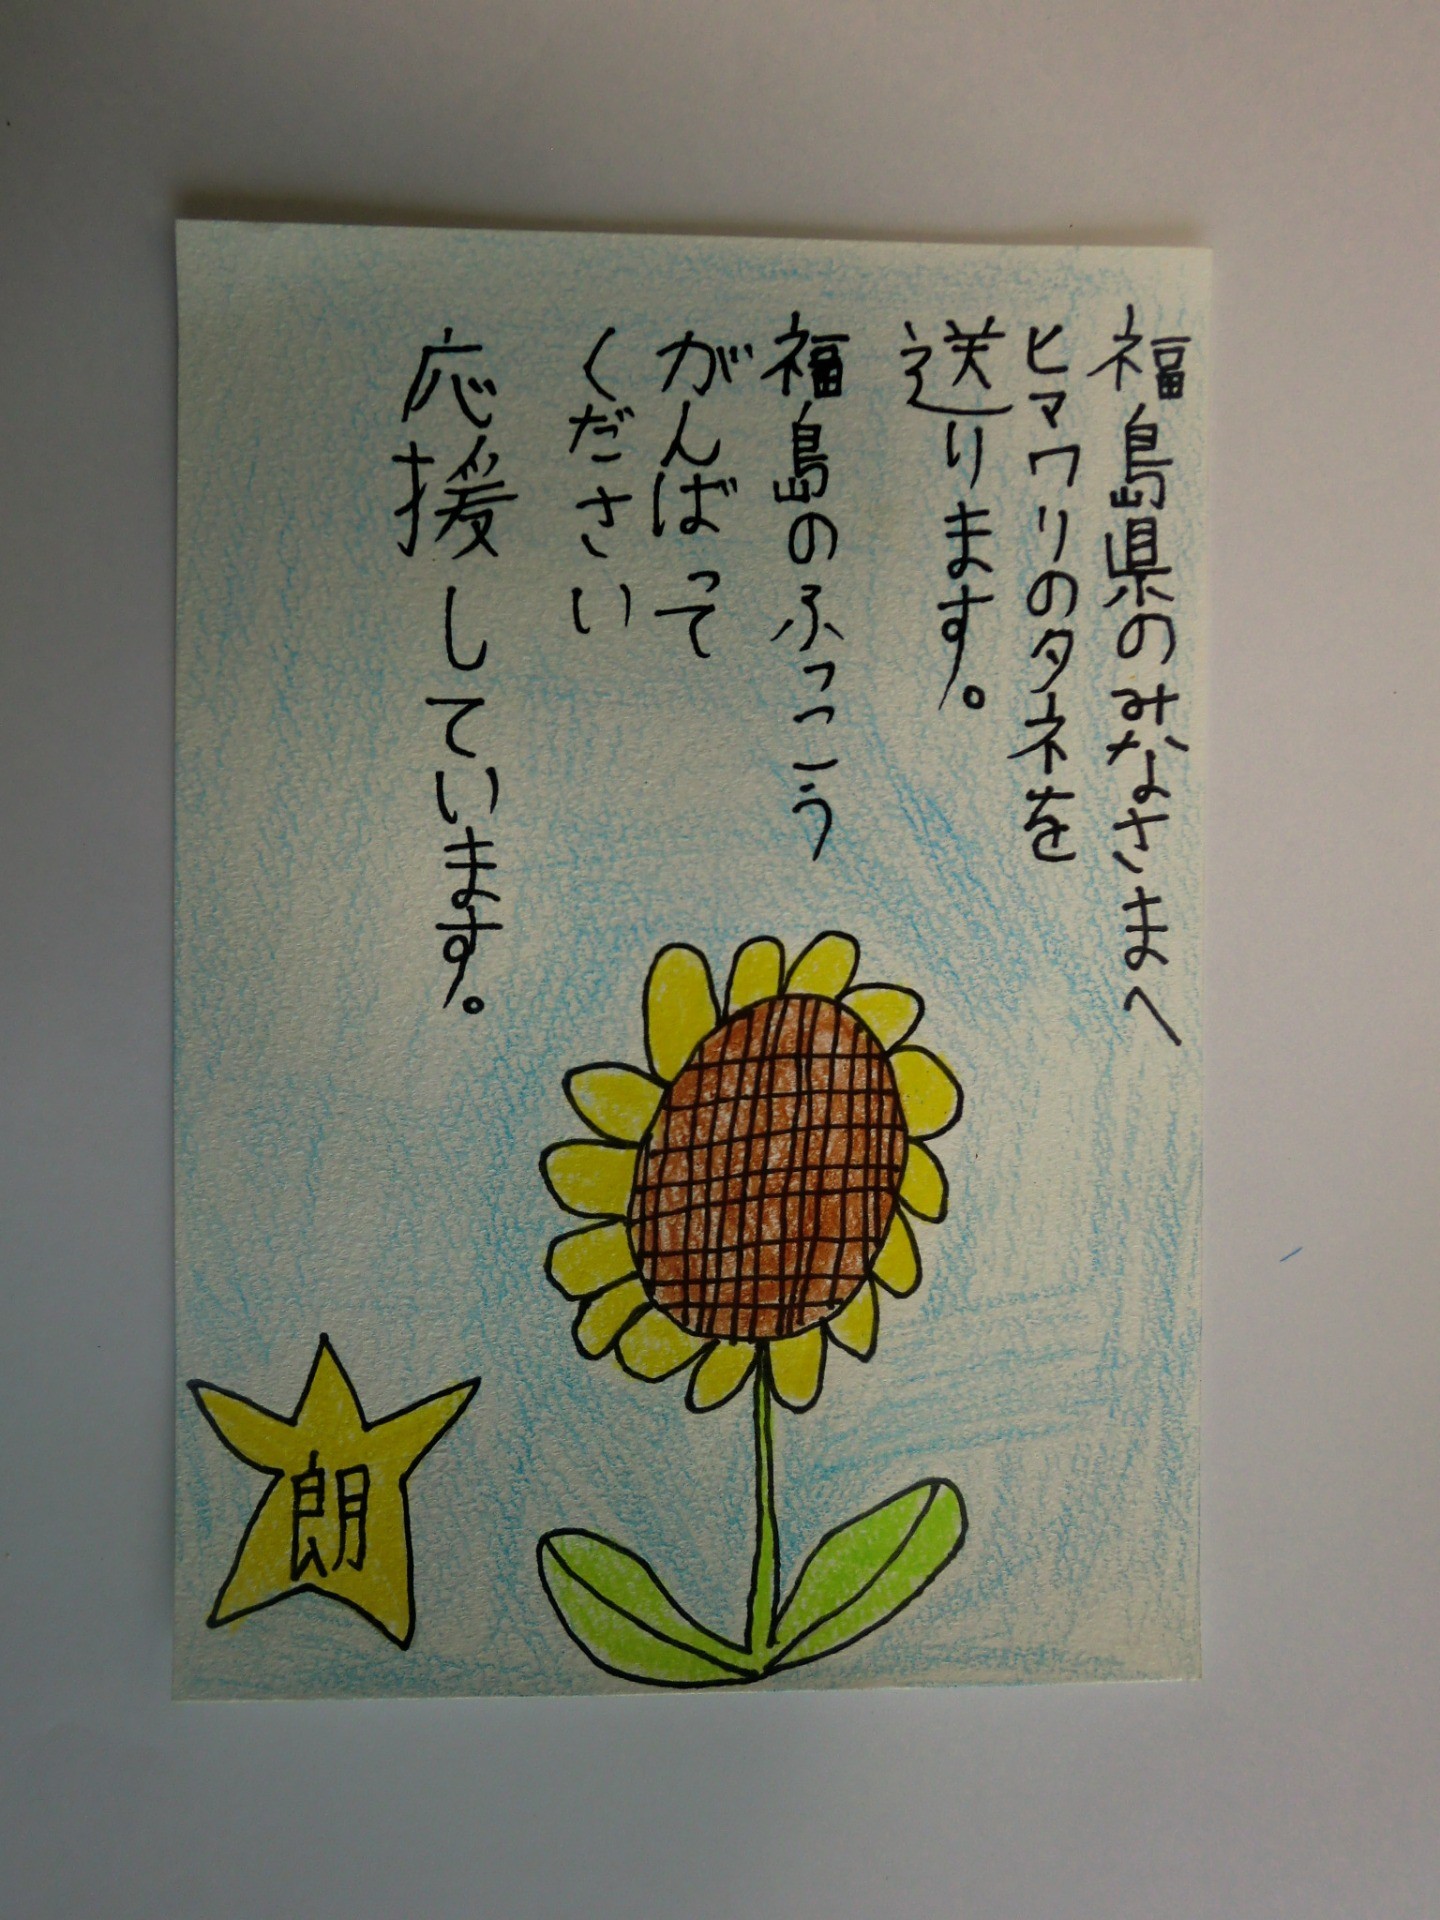 福島県のみなさまへ
ヒマワリのタネを
送ります。
福島のふっこう
がんばって
ください
応援しています。
朗